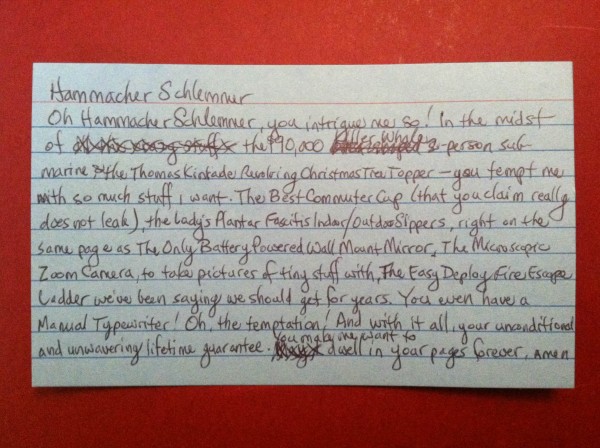 Hammacher Schlemmer
Oh Hammacher Schlemmer, you intrigue me so! In the midst
of the $90,000 Killer Whale 2-person sub-
marine & the Thomas Kinkade Revolving Christmas Tree Topper — you tempt me
with so much stuff I want. The Best Commuter Cup (that you claim really
does not leak), the Lady's Plantar Fasciitis Indoor/Outdoor Slippers, right on the
same page as The Only Battery Powered Wall Mount Mirror, The Microscopic
Zoom Camera, to take pictures of tiny stuff with, The Easy Deploy Fire Escape
Ladder we've been saying we should get for years. You even have a
Manual Typewriter! Oh, the temptation! And with it all, your unconditional
and unwavering lifetime guarantee. You make me want to dwell in your pages forever, amen